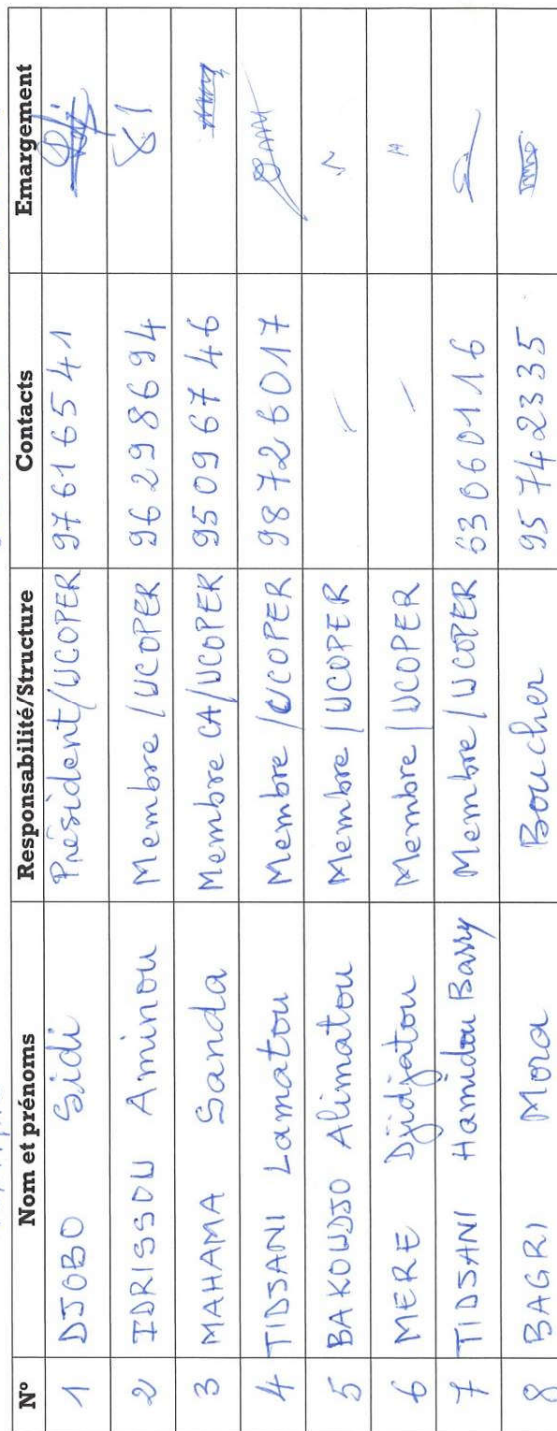 N° Nom et prénoms Responsabilité/Structure Contacts Emargement
1 DJOBO Sidi Président/UCOPER 97616541
2 IDRISSOU Aminou Membre/UCOPER 96298694
3 MAHAMA Sanda Membre CA/UCOPER 95096746
4 TIDJANI Lamatou Membre/UCOPER 98726017
5 BAKOUDJO Alimatou Membre/UCOPER /
6 MERE Djidjatou Membre/UCOPER /
7 TIDJANI Hamidou Barry Membre/UCOPER 63060116
8 BAGRI Mora Boucher 95742335